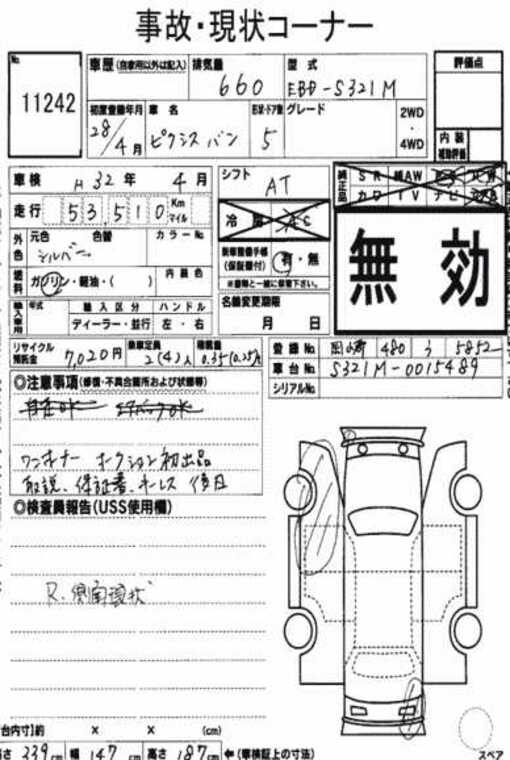 事故・現状コーナー
No. 11242
車歴 (自家用以外は記入) 排気量 660 型式 EBD-S321M
評価点
初度登録年月 28/4月 車名 ピクシス バン ドア数 5 グレード 2WD・4WD
内装補助評価
車検 H32年 4月 シフト AT
純正品 SR 純AW
カワ TV ナビ
走行 53,510 Km マイル
冷
外色 元色 色替 カラーNo.
シルバー
(保証書付) 有・無
※書類と一緒に保管下さい。
無効
燃料 ガソリン・軽油・( ) 内装色
名義変更期限
月 日
輸入車用 年式 輸入区分 ハンドル
ディーラー・並行 左・右
リサイクル預託金 7,020円 乗車定員 2(4)人 積載量 0.35(0.25)t
登録No. 480 う 5852
車台No. S321M-0015489
シリアルNo.
◎注意事項(修復・不具合箇所および状態等)
ワンオーナー オークション初出品
取説、保証書、キーレス 後日
◎検査員報告(USS使用欄)
R.側面現状
台内寸】約 × × (cm)
さ 339cm 幅 147cm 高さ 187cm ←(車検証上の寸法)
スペア